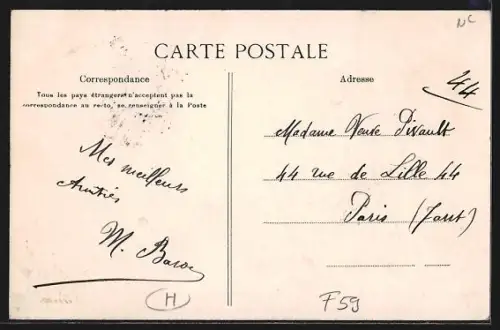 NC
CARTE POSTALE
Correspondance
Tous les pays étrangers n'acceptent pas la
correspondance au recto, se renseigner à la Poste
Mes meilleurs
Amitiés
M.
H
Adresse
44
Madame Veuve
44 rue de Lille 44
Paris
F59